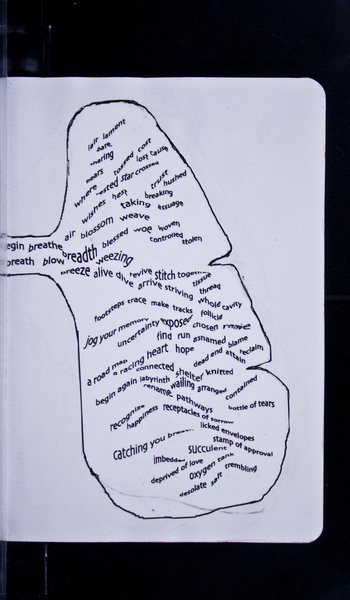 lair lament
dare
sharing
wears
tossed cost
lost cause
where nested star crossed
trust hushed
wishes hest
breaking
taking assuage
air blossom weave
blessed woe woven
controlled stolen
begin breathe
breath blow
breadth
weezing
breeze alive dive revive stitch together
tissue
arrive striving thread
whole cavity
footsteps trace make tracks
follicle
jog your memory
uncertainty exposed chosen
find run ashamed blame
a road map
a racing heart hope
dead end attain reclaim
connected shelter knitted
begin again labyrinth
wailing arranged
rename pathways
contained
bottle of tears
recognize
happiness receptacles of sorrow
licked envelopes
stamp of approval
catching you
succulent
imbedded
deprived of love
oxygen tank
trembling
desolate salt